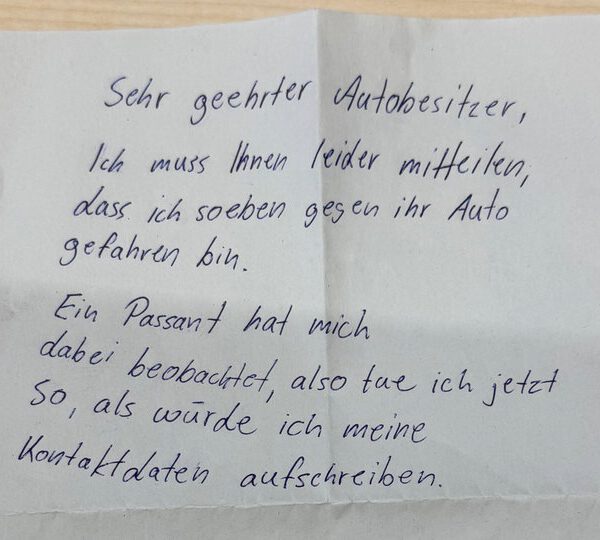 Sehr geehrter Autobesitzer,
Ich muss Ihnen leider mitteilen,
dass ich soeben gegen ihr Auto
gefahren bin.
Ein Passant hat mich
dabei beobachtet, also tue ich jetzt
so, als würde ich meine
Kontaktdaten aufschreiben.